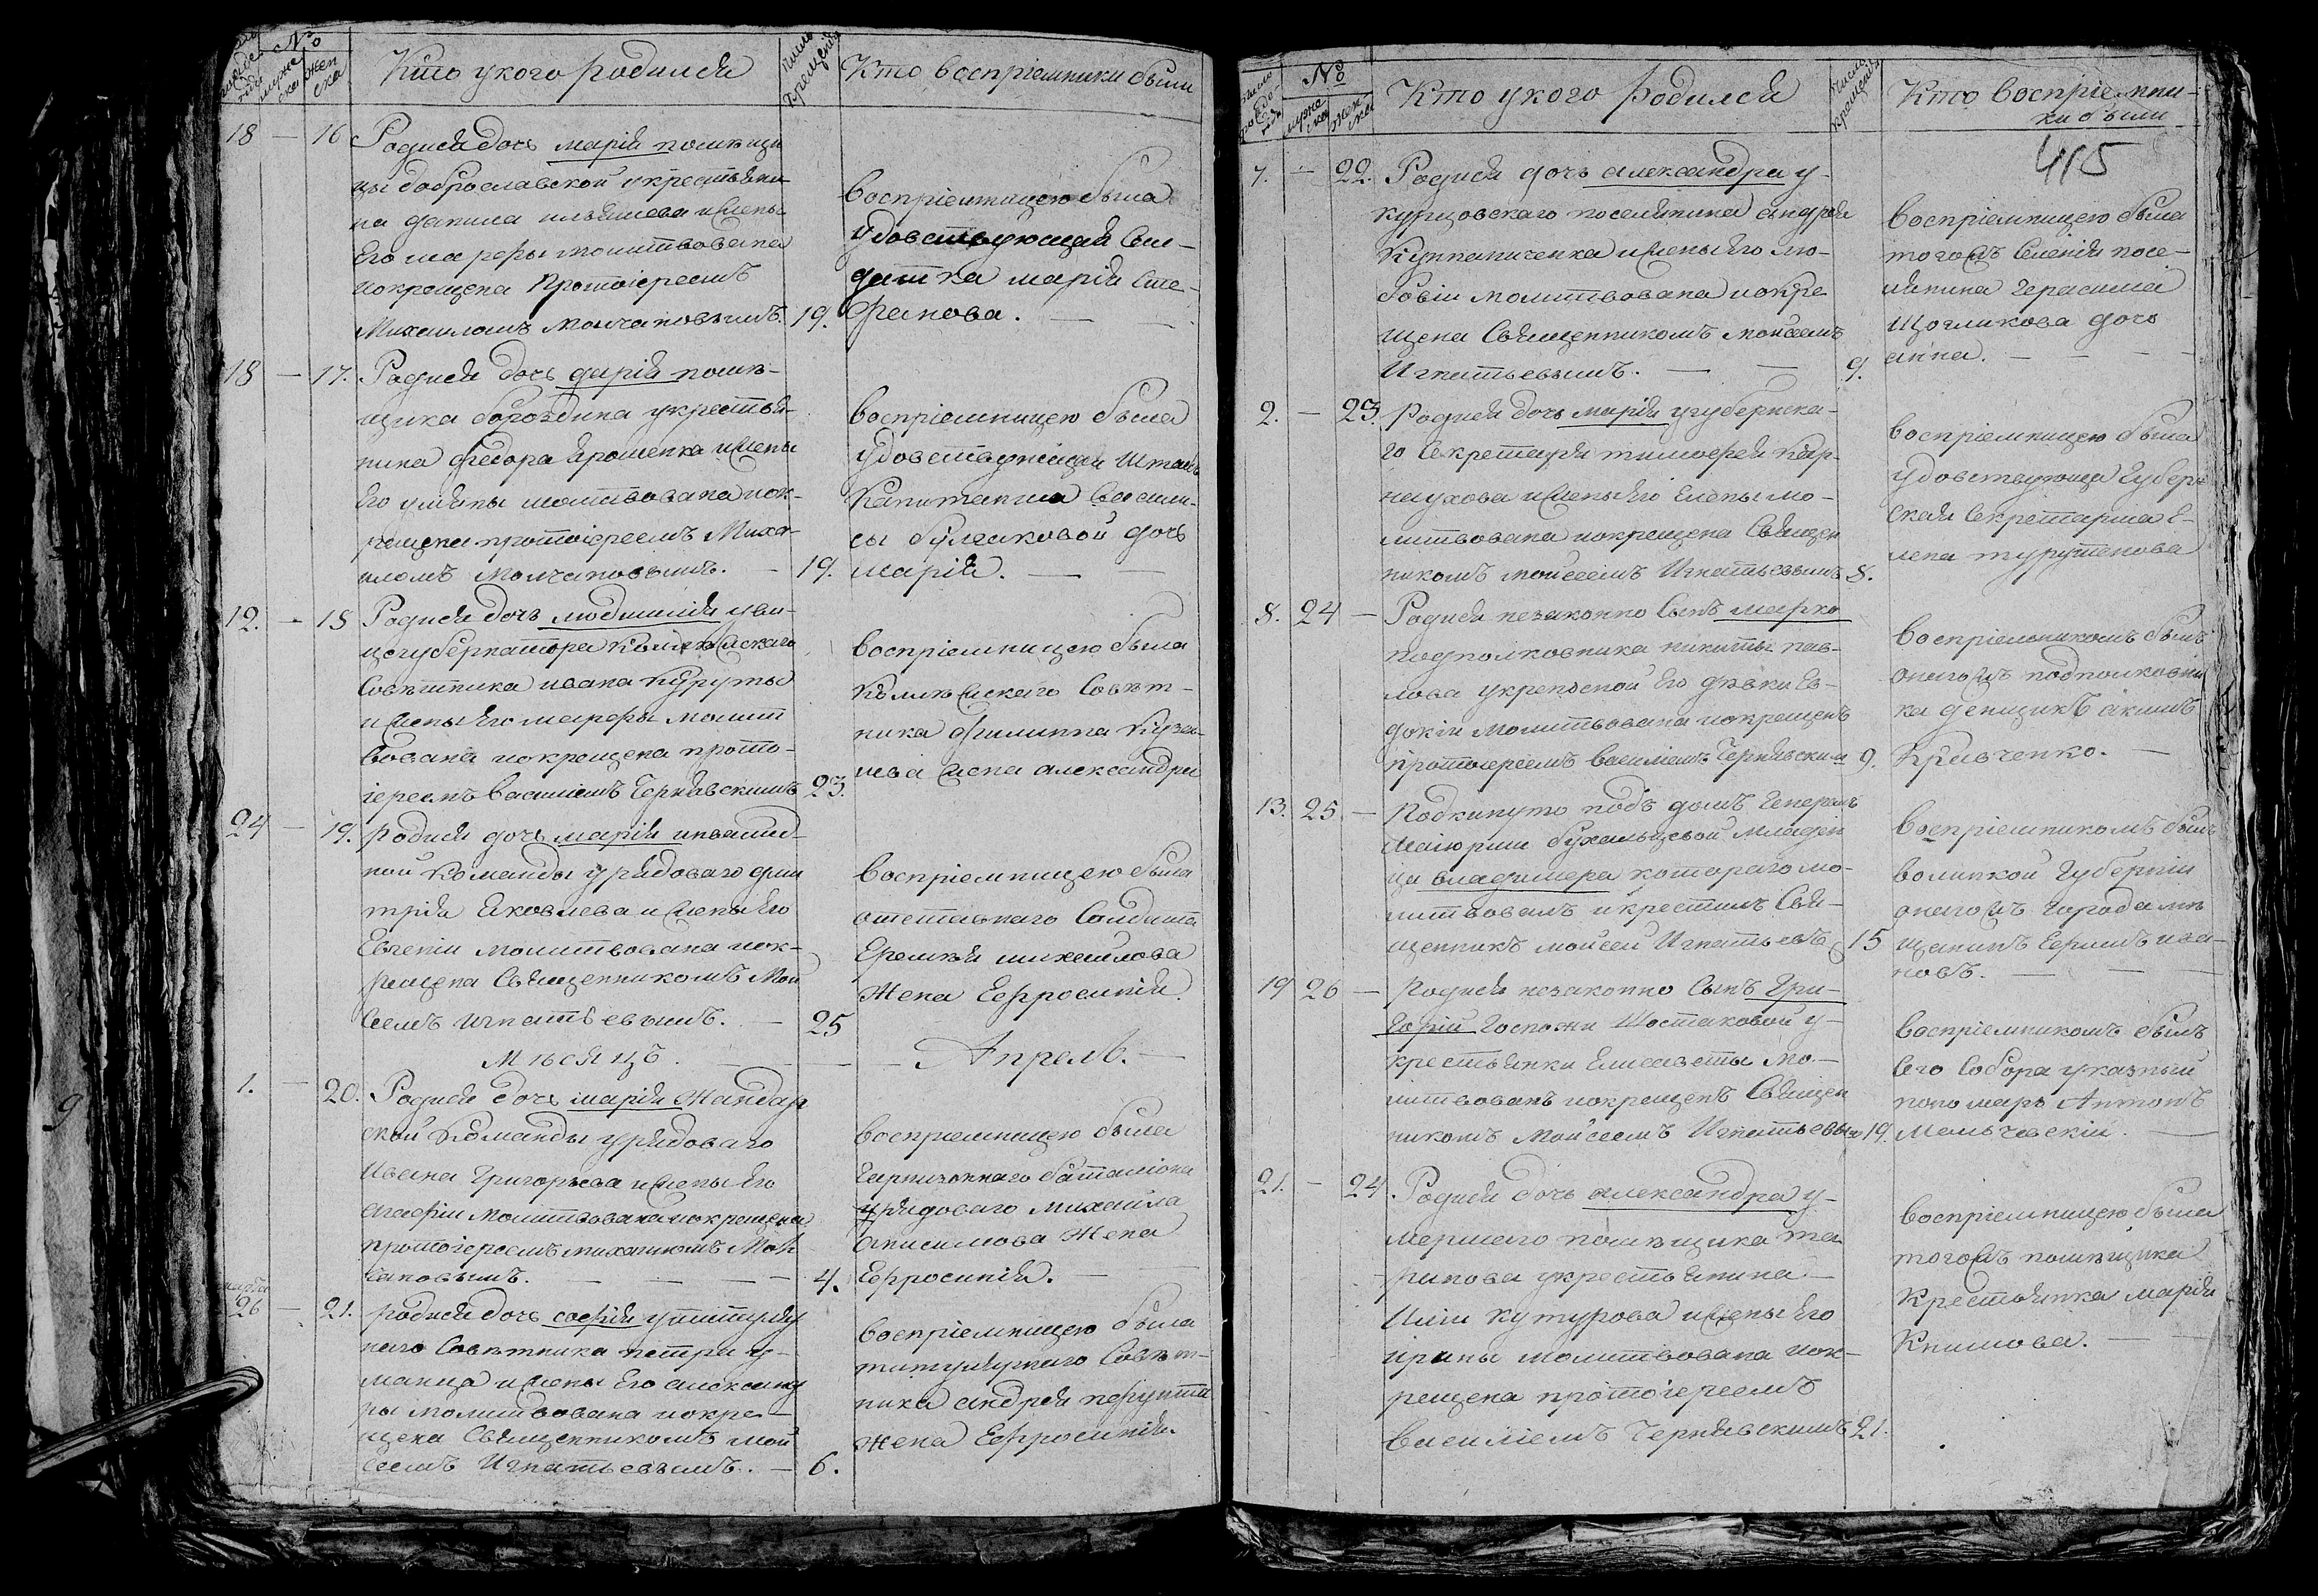 число рожде-
нія
№
муже
ска
жен
ска
Кто укого родился
число
крещенія
Кто воспріемники были
18 — 16 Родися дочь марія помѣщи
цы доброславской укрестьяни
на данила ильяшева ижены
Его марфы молитвована
иокрещена Протоіереемъ
Михаиломъ Молчановымъ. 19.
воспріемницею была
удовствующая сол-
датка марія Сте-
фанова. —
18 — 17. Родися дочь дарія помѣ-
щика бороздина укрестья-
нина федора Ярошенка ижены
Его ульяны молитвована иок-
рещена протоіереемъ Миха-
иломъ Молчановымъ. — 19.
воспріемницею была
удовствующей Штабъ
Капитанши Васили-
сы булгаковой дочь
марія. — —
12. — 18 Родися дочь людмилія уви-
цегубернатора Колежскаго
Совѣтника ивана Куруты
ижены Его марфы молит
вована иокрещена прото-
іереемъ Василіемъ Чернявскимъ 23.
воспріемницею была
Колежскаго Совѣт-
ника филиппа
жена александра
24 — 19. Родися дочь марія инвалид-
ной Команды урядоваго дми
трія Яковлева ижены Его
Евгеніи молитвована иок-
рещена Священникомъ Мои
сеемъ Игнатьевымъ. — 25
воспріемницею была
отставнаго Солдата
Еремѣя михайлова
Жена Ефросинія.
Мѣсяцъ. — — Апрель. —
1. — 20. Родися дочь марія Жандар
ской Команды урядоваго
Ивана Григорьева ижены Его
агафіи молитвована иокрещена
протоіереемъ михаиломъ Мол
чановымъ. — — — — 4.
воспріемницею была
Гарнизоннаго баталіона
урядоваго михаила
анисимова Жена
Ефросинія. — —
марта
26 — 21. родися дочь софія утитуляр
наго Совѣтника петра у-
манца ижены Его александ
ры молитвована иокре-
щена Священникомъ мои
сеемъ Игнатьевымъ. — 6.
воспріемницею была
титулярнаго Совѣт-
ника андрея
жена Ефросинія.
9
число
рожде-
нія
№
муже
ска
жен
ска
Кто укого родился
число
крещенія
Кто воспріемни-
ки были
415
7. — 22. Родися дочь александра у-
курцовскаго поселянина андрея
ижены Его лю-
бовіи молитвована иокре
щена Священникомъ моисеемъ
Игнатьевымъ. — — 9.
воспріемницею была
тогожъ Селенія посе-
лянина Герасима
Щогликова дочь
анна. — — —
2. — 23. Родися дочь марія угубернска-
го Секретаря тимофея Кар-
наухова ижены Его Елены мо-
литвована иокрещена Священ
никомъ моисеемъ Игнатьевымъ 8.
воспріемницею была
удовствующа Губерн
ская Секретарша Е-
лена
8. 24 — Родися незаконно Сынъ марко
подполковника никиты пав-
лова укрепосной Его дѣвки Ев-
докіи молитвована иокрещенъ
протоіереемъ василіемъ Чернявским 9.
Воспріемникомъ былъ
онагожъ подполковни
ка денщикъ акимъ
Кравченко. —
13. 25 — Подкинуто подъ домъ Генералъ
Маіорши бухальцевой младен
ца владимера котораго мо-
литвовалъ икрестилъ Свя-
щенникъ моисей Игнатьевъ 15
Воспріемникомъ былъ
волинкой Губерніи
онагожъ города мѣ
щанинъ Ива-
новъ. — — —
19 26 — Родися незаконно Сынъ Гри-
горій Госпожи Шостаковой у-
крестьянки Елисаветы мо-
литвованъ иокрещенъ Священ
никомъ Моисеемъ Игнатьевы 19.
воспріемникомъ былъ
Сего Собора указный
пономарь Антонъ
Мельчевскій. —
21. — 24. Родися дочь александра у-
мершаго помѣщика та
ранова укрестьянина
Ильи Кутурова ижены Его
ирины молитвована иок-
рещена протоіереемъ
Василіемъ Чернявскимъ 21.
воспріемницею была
тогожъ помѣщика
Крестьянка марія
Климова. —